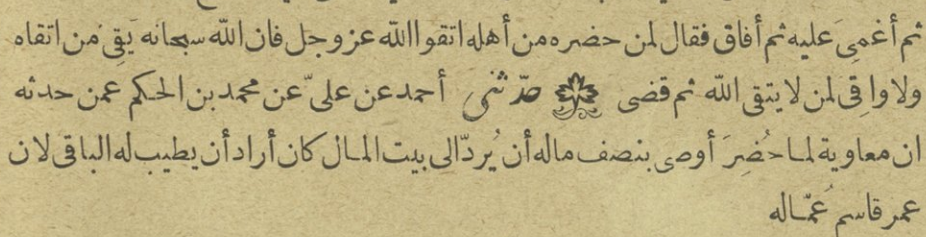 ثم أغمِىَ عليه ثم أفاق فقال لمن حضره من أهله اتقوا الله عز وجل فان الله سبحانه يَقِى من اتقاه
ولا واقِى لمن لا يتقى الله ثم قضى حدّثنى أحمد عن علىّ عن محمد بن الحكم عمن حدثه
ان معاوية لما حُضِرَ أوصى بنصف ماله أن يُردّ الى بيت المال كان أراد أن يطيب له الباقى لان
عمر قاسم عُمّاله